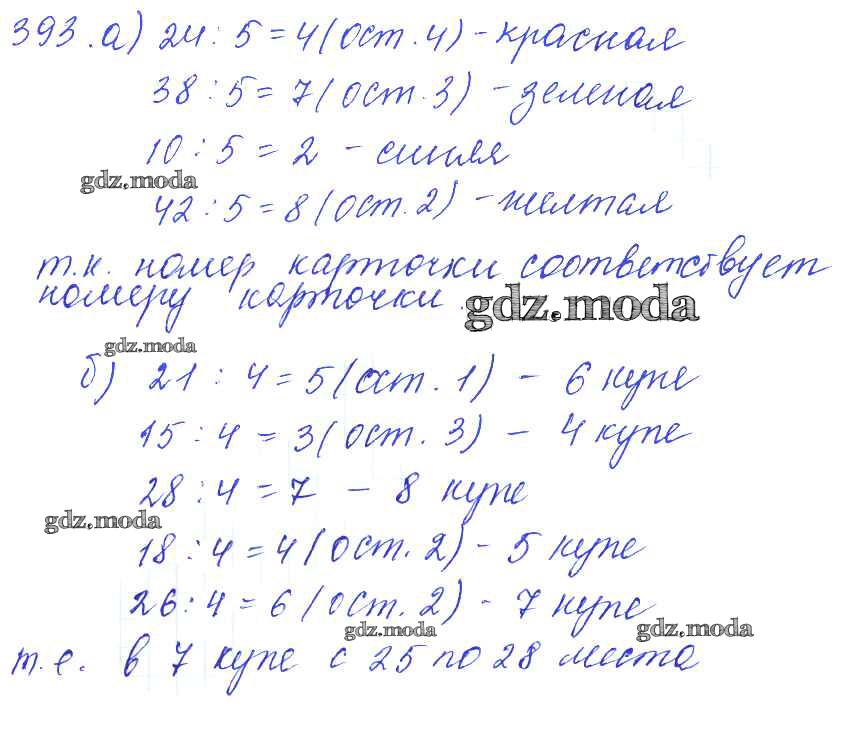 393.а) 24 : 5 = 4 (ост. 4) - красная
38 : 5 = 7 (ост. 3) - зеленая
10 : 5 = 2 - синяя
gdz.moda
42 : 5 = 8 (ост. 2) - желтая
т.к. номер карточки соответствует
номеру карточки.
gdz.moda
gdz.moda
б) 21 : 4 = 5 (ост. 1) - 6 купе
15 : 4 = 3 (ост. 3) - 4 купе
28 : 4 = 7 - 8 купе
gdz.moda
18 : 4 = 4 (ост. 2) - 5 купе
26 : 4 = 6 (ост. 2) - 7 купе
gdz.moda
gdz.moda
т.е. в 7 купе с 25 по 28 места